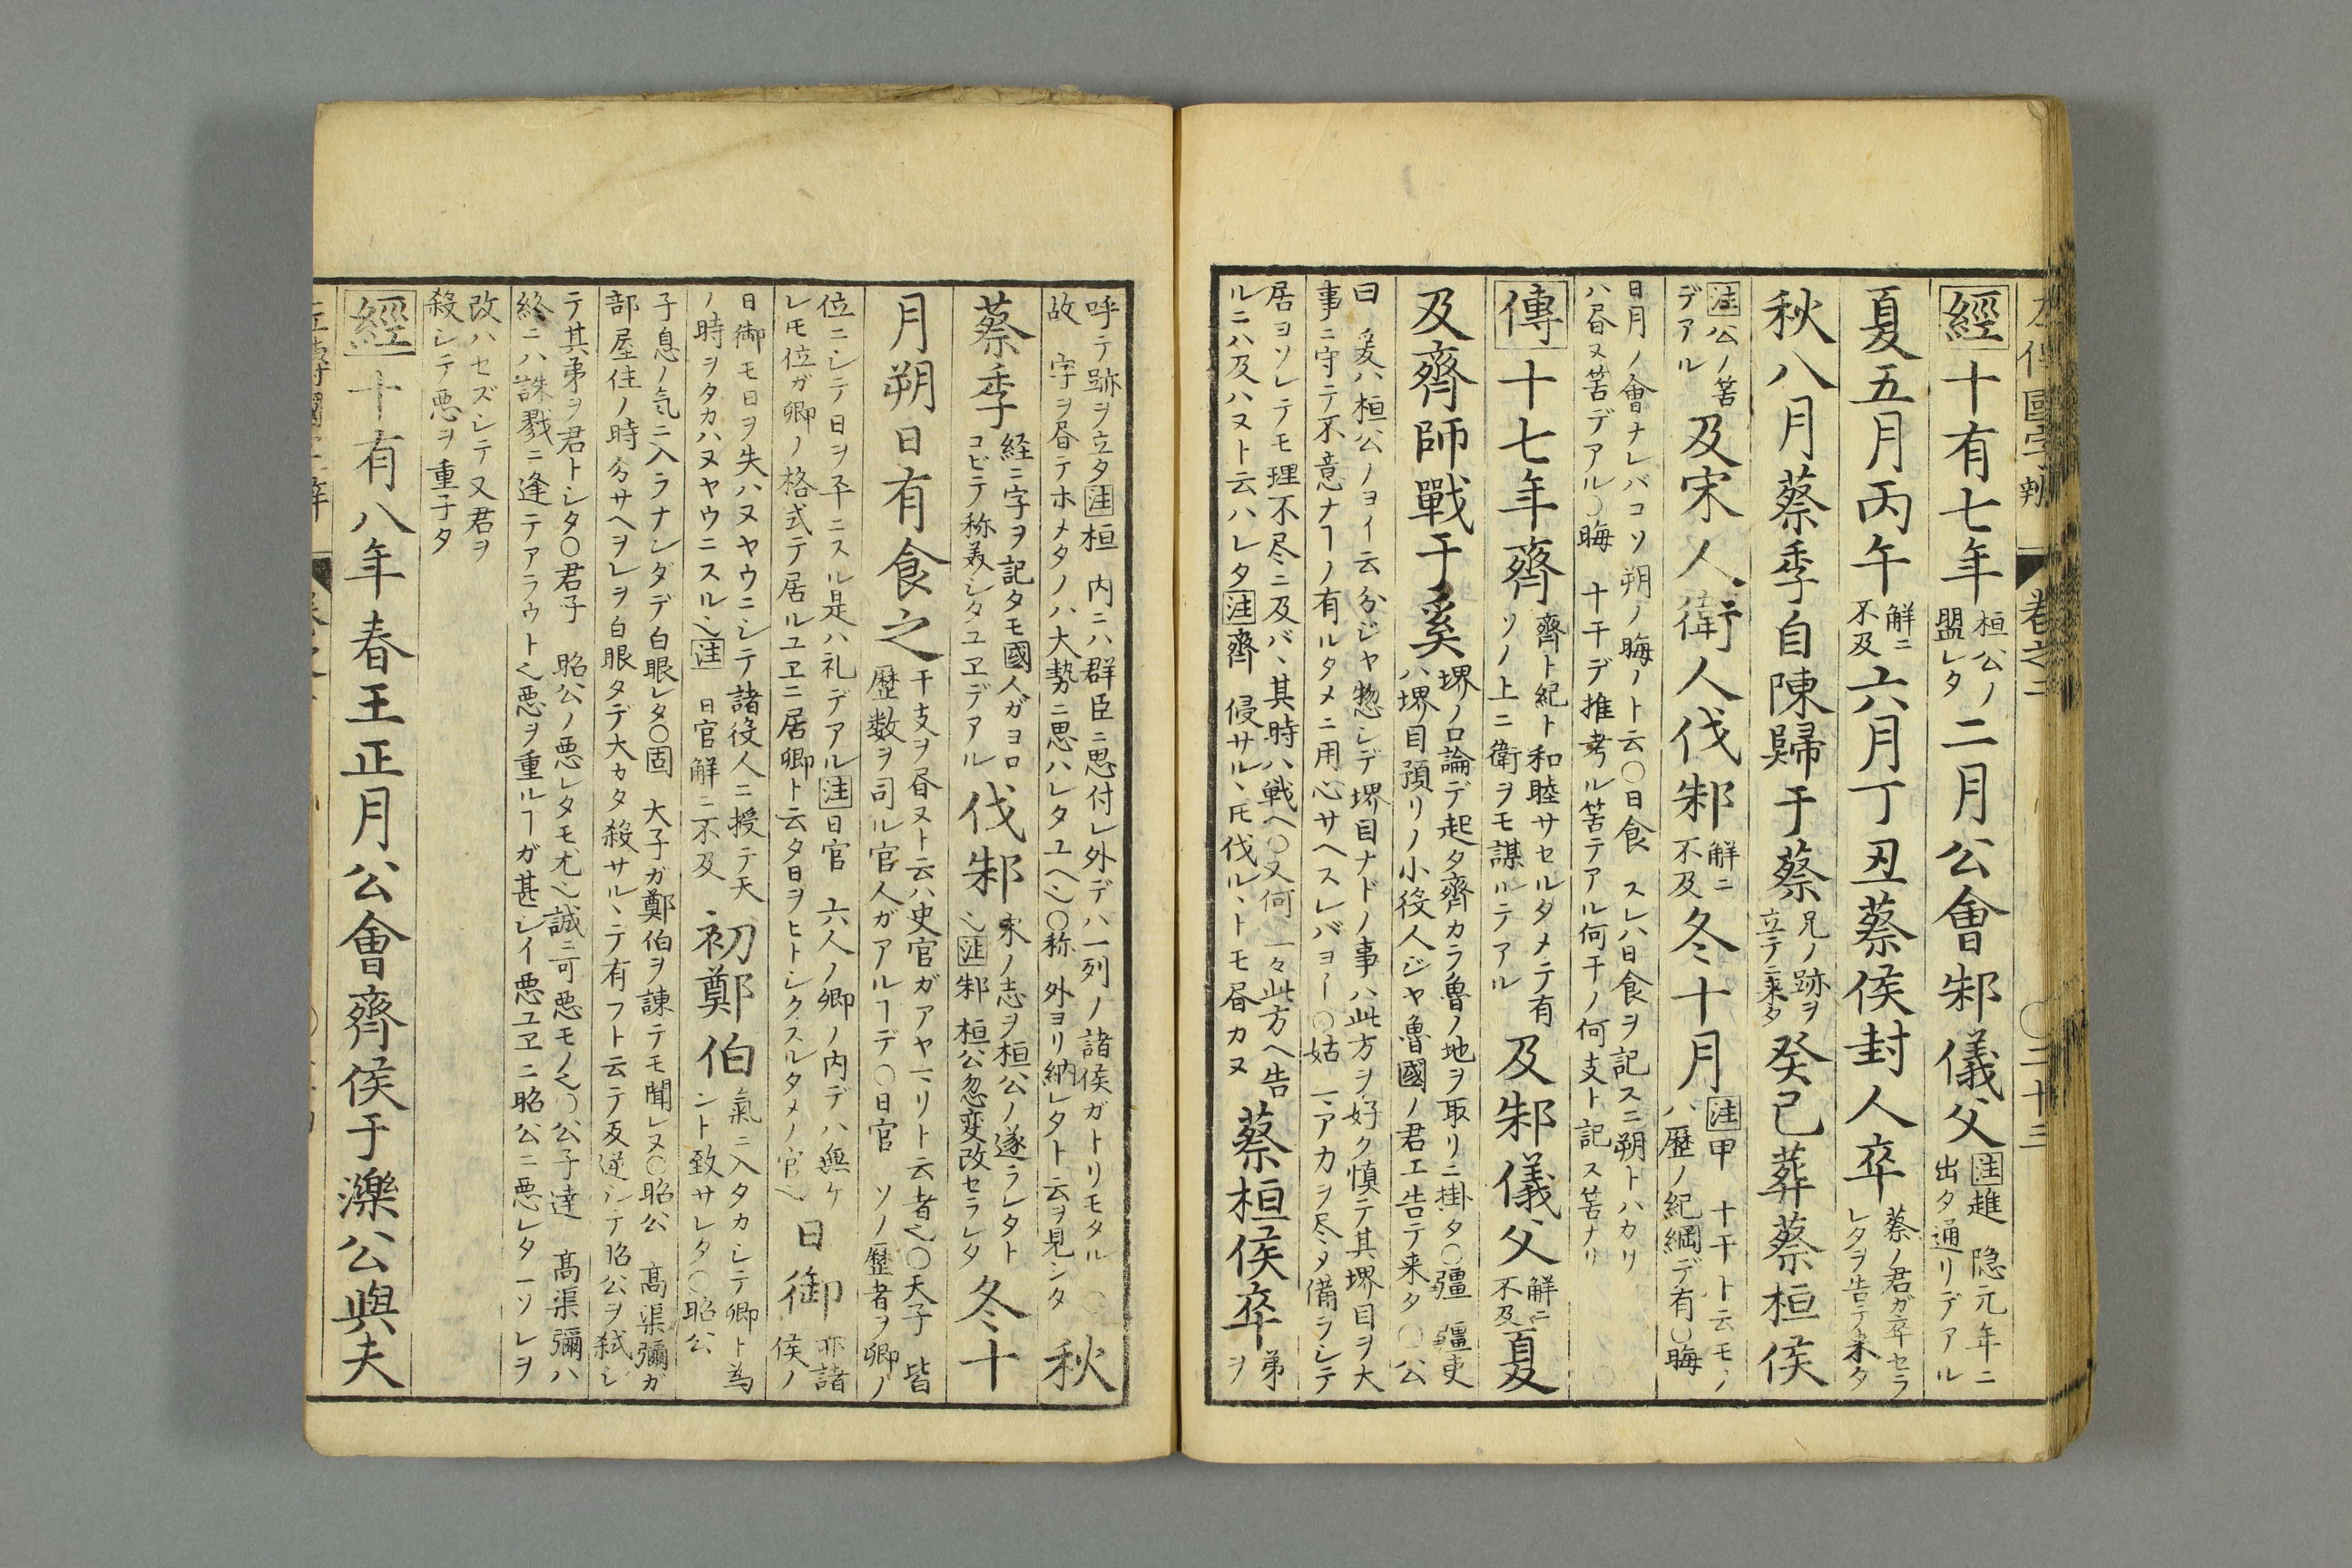 左傳國字辨 卷之二 〇二十三
經十有七年桓公ノ二月公會邾儀父注趡 隠元年ニ
盟レタ 出タ通リデアル
夏五月丙午解ニ六月丁丑蔡侯封人卒蔡ノ君ガ卒セラ
不及 レタヲ告テ来タ
秋八月蔡季自陳歸于蔡兄ノ跡ヲ癸巳葬蔡桓侯
立テニ来タ
注公ノ筈及宋人衛人伐邾解ニ冬十月注甲 十干ト云モノ
デアル 不及 ハ歴ノ紀綱デ有〇晦
日月ノ會ナレバコソ朔ノ晦ノト云〇日食 スレハ日食ヲ記スニ朔トハカリ
ハ昏ヌ筈デアル〇晦 十干デ推考ル筈テアル何干ノ何支ト記ス筈ナリ
傳十七年齊齊ト紀ト和睦サセルタメテ有及邾儀父解ニ夏
ソノ上ニ衛ヲモ謀ルテアル 不及
及齊師戰于奚堺ノロ論デ起タ齊カラ魯ノ地ヲ取リニ掛タ〇疆 疆吏
ハ堺目預リノ小役人ジヤ魯國ノ君エ告テ来タ〇公
曰 爰ハ桓公ノヨイ云分ジヤ惣シデ堺目ナドノ事ハ此方ヲ好ク慎テ其堺目ヲ大
事ニ守テ不意ナヿノ有ルタメニ用心サヘスレバヨー〇姑 一アカヲ尽タ備ラシテ
居ヨソレテモ理不尽ニ及バヽ其時ハ戦ヘ〇又何 一々此方ヘ告
ルニハ及ハヌト云ハレタ注齊 侵サルヽ𪜈伐ルヽトモ昏カヌ
蔡桓侯卒弟
ヲ
呼テ跡ヲ立タ注桓 内ニハ群臣ニ思付レ外デハ一列ノ諸侯ガトリモタル
故 字ヲ昏テホメタノハ大勢ニ思ハレタユヘ〇称 外ヨリ納レタト云ヲ見シタ 秋
蔡季経ニ字ヲ記タモ國人ガヨロ伐邾宋ノ志ヲ桓公ノ遂ラレタト冬十
コビテ称美シタユヱデアル 注邾 桓公忽変改セラレタ
月朔日有食之干支ヲ昏ヌト云ハ史官ガアヤマリト云者〇天子 皆
歴数ヲ司ル官人ガアルヿデ〇日官 ソノ歴者ヲ卿ノ
位ニシテ日ヲ平ニスル是ハ礼デアル注日官 六人ノ卿ノ内デハ無ケ日御亦諸
レ𪜈位ガ卿ノ格式テ居ルユヱニ居卿ト云タ日ヲヒトシクスルタメノ官 侯ノ
日御モ日ヲ失ハヌヤウニシテ諸役人ニ授テ天初鄭伯氣ニ入タカシテ卿ト為
ノ時ヲタカハヌヤウニスル注 日官解ニ不及 ント致サレタ〇昭公
子息ノ気ニ入ラナンダデ白眼レタ〇固 大子ガ鄭伯ヲ諌テモ聞レヌ〇昭公 髙渠彌ガ
部屋住ノ時分サヘヲレヲ白眼タデ大カタ殺サルヽテ有フト云テ反逆シテ昭公ヲ弑シ
テ其弟ヲ君トシタ〇君子 昭公ノ悪レタモ尤 誠ニ可悪モノ〇公子達 髙渠彌ハ
終ニハ誅戮ニ逢テアラウト 悪ヲ重ルヿガ甚レイ悪ユヱニ昭公ニ悪レタヿソレヲ
改ハセズシテ又君ヲ
殺シテ悪ヲ重子タ
經十有八年春王正月公會齊侯于濼公與夫